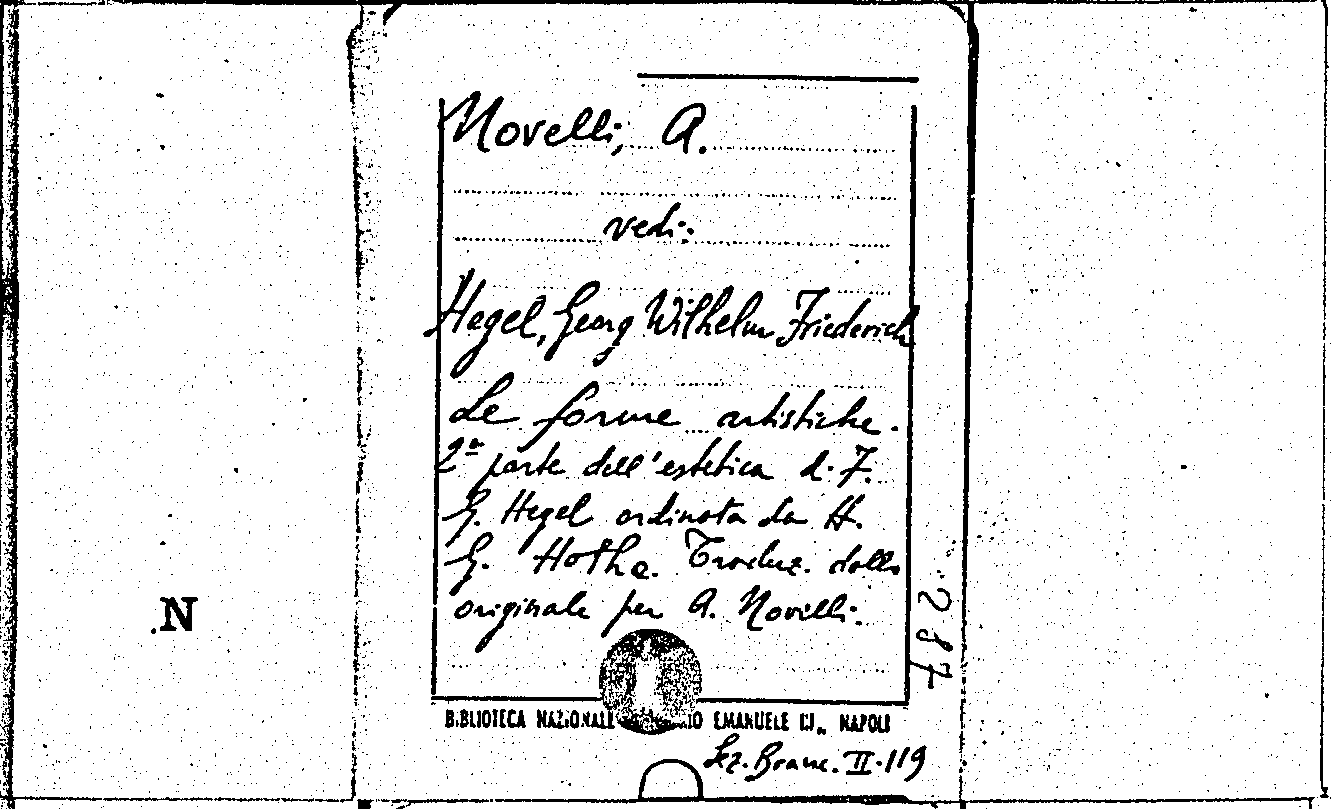 Novelli, A.
vedi:
Hegel, Georg Wilhelm Friederich
Le forme artistiche.
2ª parte dell'estetica di F.
G. Hegel ordinata da H.
G. Hothe. Traduz. dallo
originale per A. Novelli.
287
.N
BIBLIOTECA NAZIONALE EMANUELE III„ NAPOLI
Sez. Branc. II-119